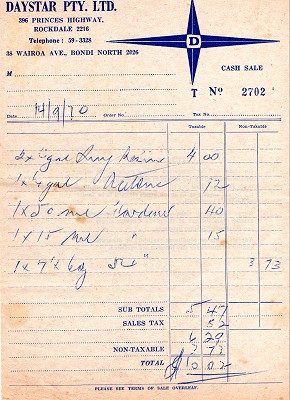 DAYSTAR PTY. LTD.
396 PRINCES HIGHWAY,
ROCKDALE 2216
Telephone : 59-3328
38 WAIROA AVE., BONDI NORTH 2026
D
M
CASH SALE
T No 2702
Date 14/9/70 Order No. Tax No.
Taxable Non-Taxable
gal Resin 4 00
1 x gal Acetone 12
1 x 50 ml Hardener 40
1 x 15 ml " 15
1 x 3 73
SUB TOTALS 5 47
SALES TAX 82
6 29
NON-TAXABLE 3 73
TOTAL 10.02
PLEASE SEE TERMS OF SALE OVERLEAF.